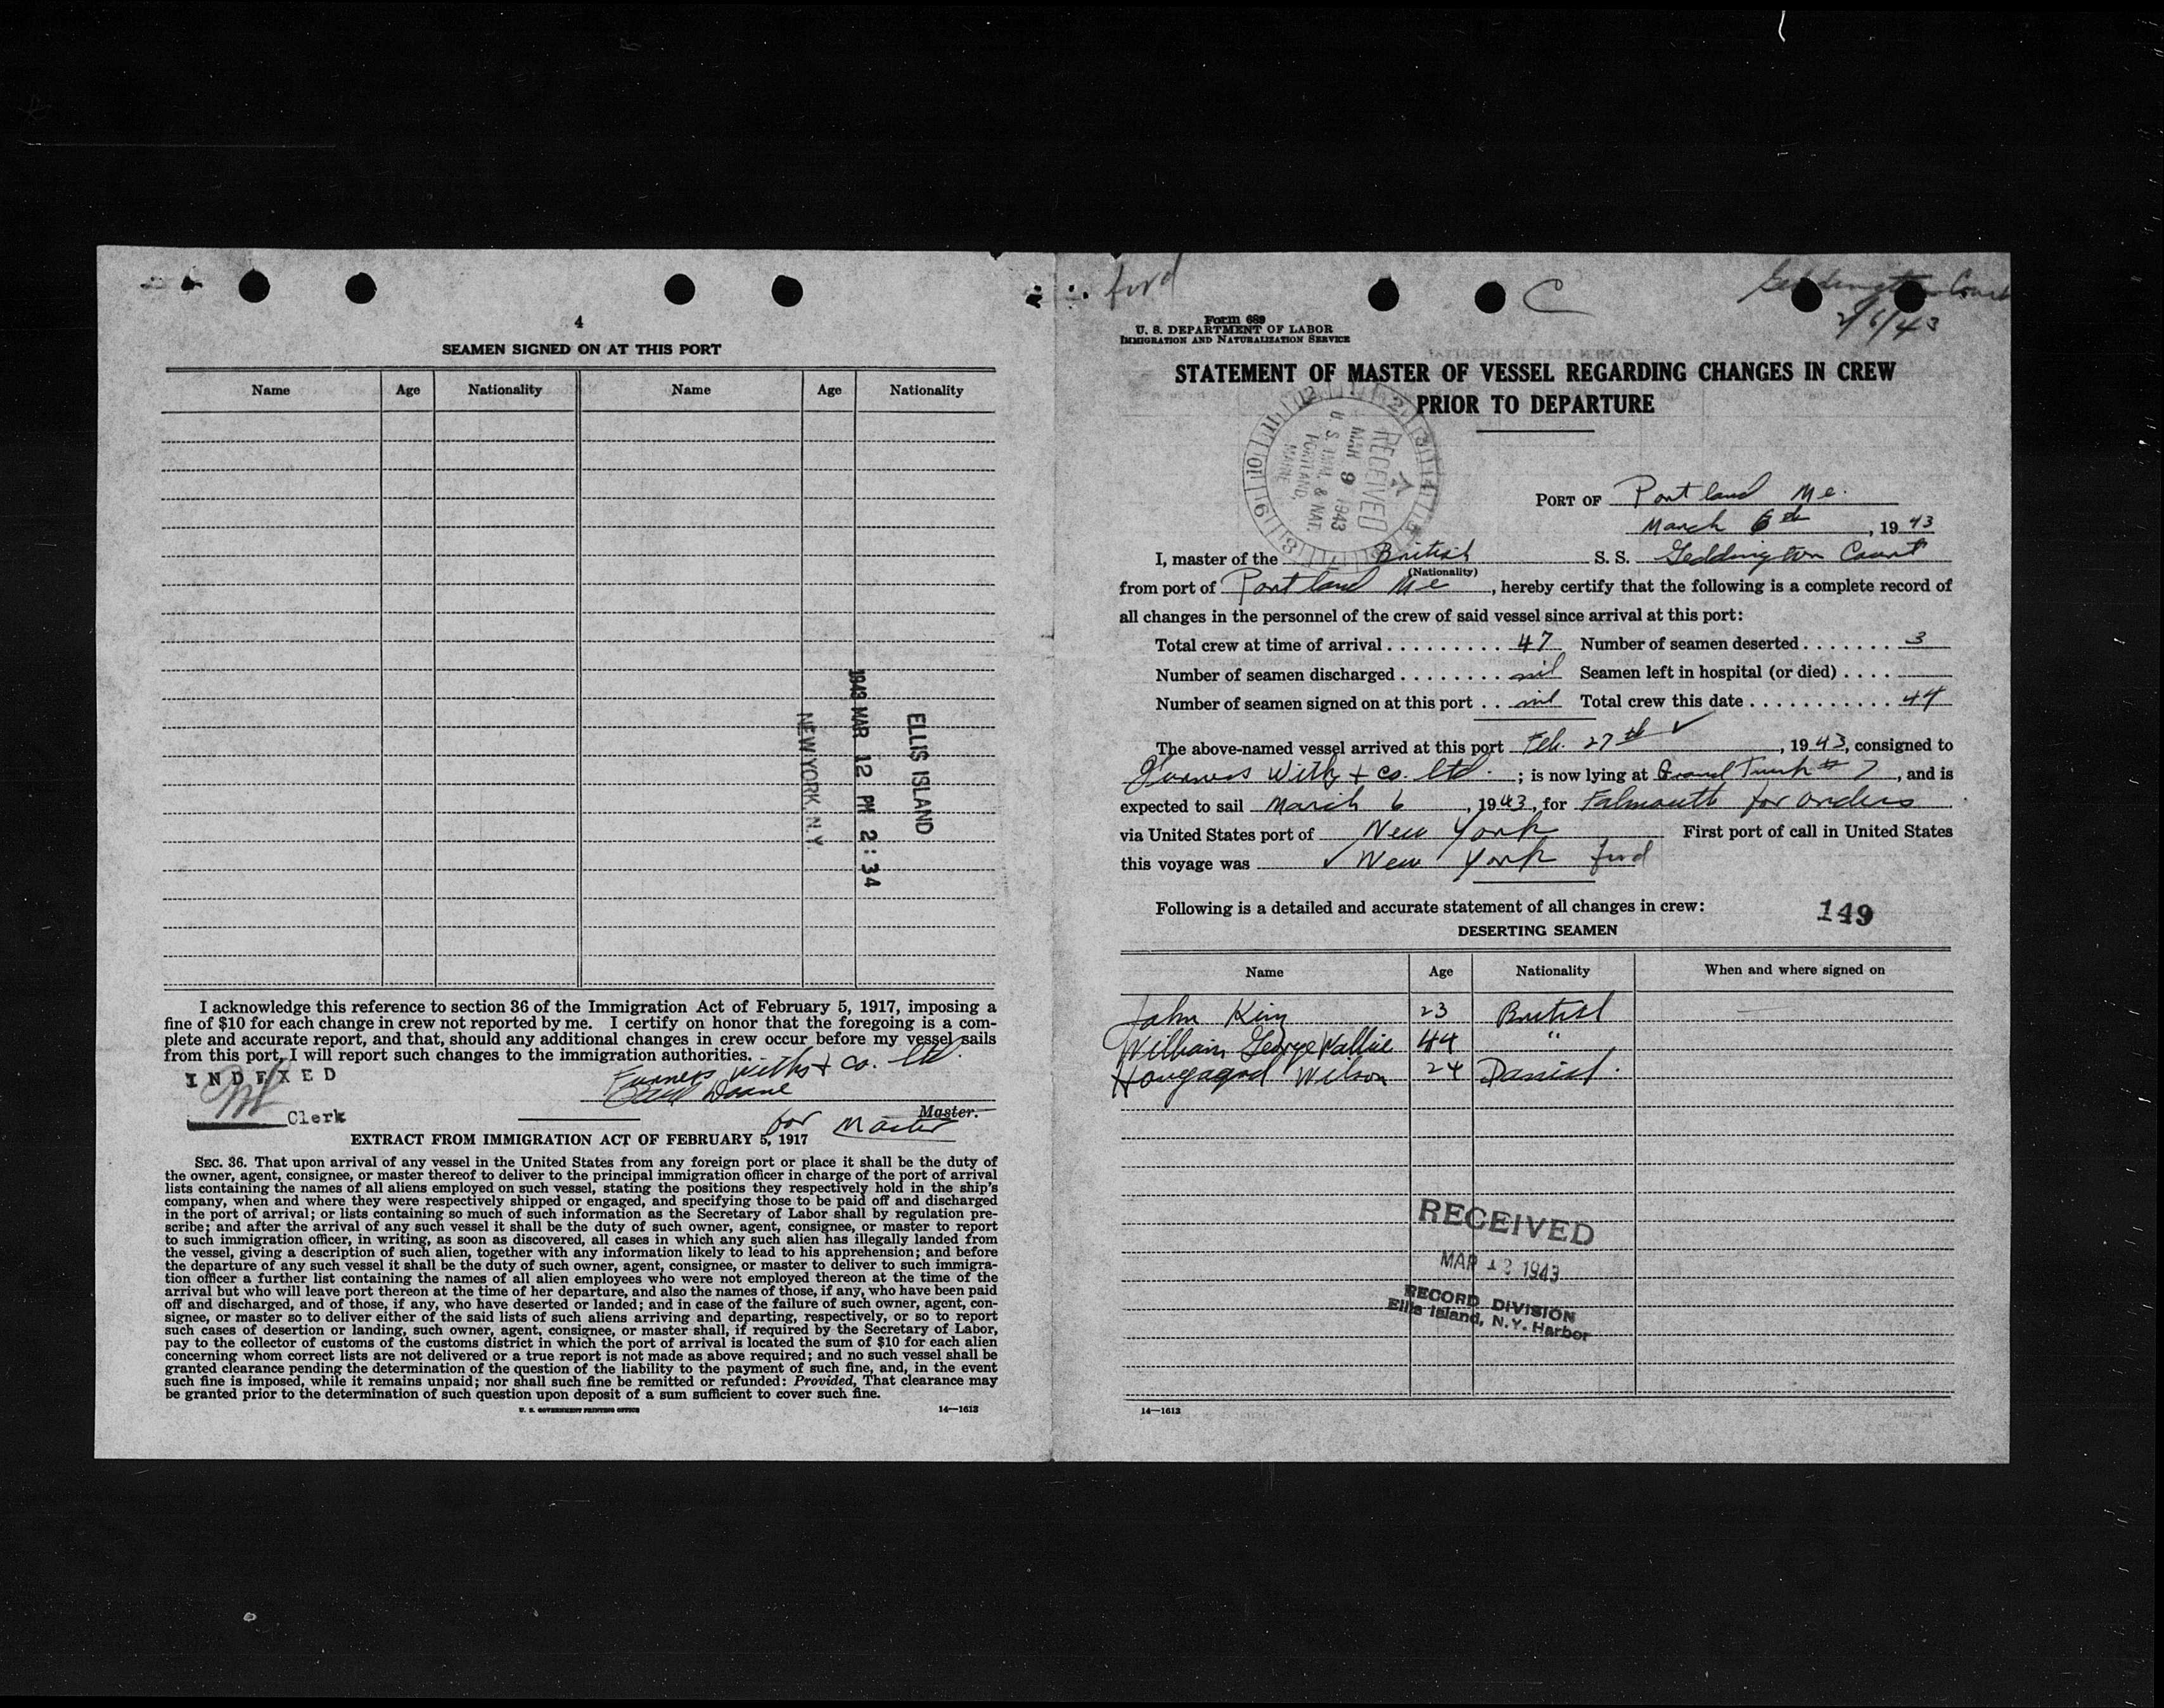 4
SEAMEN SIGNED ON AT THIS PORT
Name Age Nationality Name Age Nationality
ELLIS ISLAND
1943 MAR 12 PM 2:34
NEW YORK, N.Y.
I acknowledge this reference to section 36 of the Immigration Act of February 5, 1917, imposing a
fine of $10 for each change in crew not reported by me. I certify on honor that the foregoing is a com-
plete and accurate report, and that, should any additional changes in crew occur before my vessel sails
from this port, I will report such changes to the immigration authorities.
Furness Withy + Co. Ltd.
Doane
Master.
for Master
INDEXED
Clerk
EXTRACT FROM IMMIGRATION ACT OF FEBRUARY 5, 1917
SEC. 36. That upon arrival of any vessel in the United States from any foreign port or place it shall be the duty of
the owner, agent, consignee, or master thereof to deliver to the principal immigration officer in charge of the port of arrival
lists containing the names of all aliens employed on such vessel, stating the positions they respectively hold in the ship's
company, when and where they were respectively shipped or engaged, and specifying those to be paid off and discharged
in the port of arrival; or lists containing so much of such information as the Secretary of Labor shall by regulation pre-
scribe; and after the arrival of any such vessel it shall be the duty of such owner, agent, consignee, or master to report
to such immigration officer, in writing, as soon as discovered, all cases in which any such alien has illegally landed from
the vessel, giving a description of such alien, together with any information likely to lead to his apprehension; and before
the departure of any such vessel it shall be the duty of such owner, agent, consignee, or master to deliver to such immigra-
tion officer a further list containing the names of all alien employees who were not employed thereon at the time of the
arrival but who will leave port thereon at the time of her departure, and also the names of those, if any, who have been paid
off and discharged, and of those, if any, who have deserted or landed; and in case of the failure of such owner, agent, con-
signee, or master so to deliver either of the said lists of such aliens arriving and departing, respectively, or so to report
such cases of desertion or landing, such owner, agent, consignee, or master shall, if required by the Secretary of Labor,
pay to the collector of customs of the customs district in which the port of arrival is located the sum of $10 for each alien
concerning whom correct lists are not delivered or a true report is not made as above required; and no such vessel shall be
granted clearance pending the determination of the question of the liability to the payment of such fine, and, in the event
such fine is imposed, while it remains unpaid; nor shall such fine be remitted or refunded: Provided, That clearance may
be granted prior to the determination of such question upon deposit of a sum sufficient to cover such fine.
U. S. GOVERNMENT PRINTING OFFICE 14—1613
fwd C Geddington Court
Form 689
U. S. DEPARTMENT OF LABOR
IMMIGRATION AND NATURALIZATION SERVICE
STATEMENT OF MASTER OF VESSEL REGARDING CHANGES IN CREW
PRIOR TO DEPARTURE
RECEIVED
MAR 9 1943
U. S. IMM. & NAT.
PORTLAND,
MAINE
PORT OF Portland Me.
March 6th, 1943
I, master of the British S. S. Geddington Court
(Nationality)
from port of Portland Me, hereby certify that the following is a complete record of
all changes in the personnel of the crew of said vessel since arrival at this port:
Total crew at time of arrival . . . . . . . . . 47 Number of seamen deserted . . . . . . . 3
Number of seamen discharged . . . . . . . . nil Seamen left in hospital (or died) . . . .
Number of seamen signed on at this port . . nil Total crew this date . . . . . . . . . . . 44
The above-named vessel arrived at this port Feb. 27th ✓, 1943, consigned to
Furness Withy + Co. Ltd.; is now lying at Grand Trunk # 7, and is
expected to sail March 6, 1943, for Falmouth for orders
via United States port of New York First port of call in United States
this voyage was ✓ New York fwd
Following is a detailed and accurate statement of all changes in crew: 149
DESERTING SEAMEN
Name Age Nationality When and where signed on
John King 23 British
William George Wallie 44 "
Wilson 24 Danish.
RECEIVED
MAR 12 1943
RECORD DIVISION
Ellis Island, N.Y. Harbor
14—1613